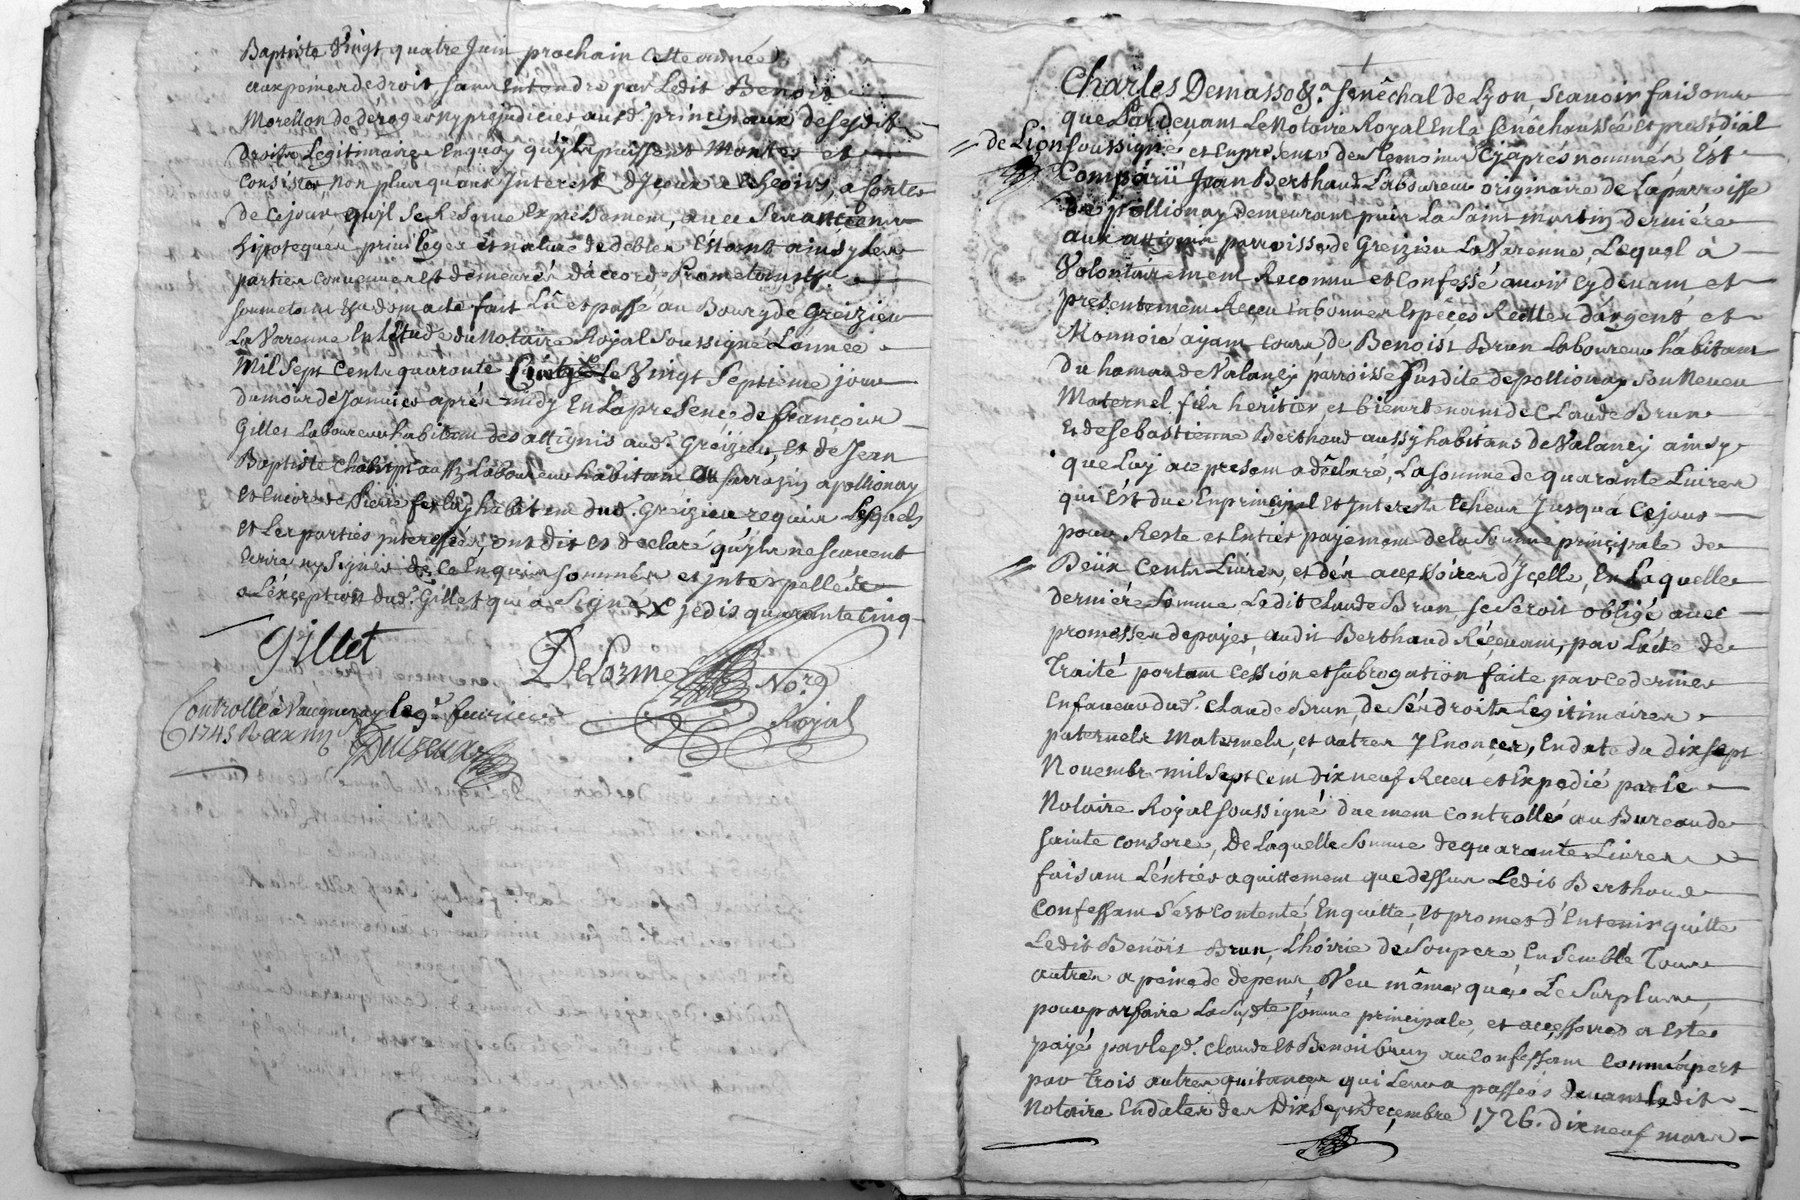 Baptiste Vingt quatre Juin prochain Cette année
aux peines de droit sans Entendre par Ledit Benoist
Morellon de déroger ny préjudicier aux d. principaux de sesdits
droits Legitimaires En quoy qu'ils puissent Monter et
Consister, Non plus qu'aux Interest d'Iceux Echeus, a Conter
de Ce jour qu'il se Réserve Expressement, avec Ses anciens
hipoteques privileges et nature de debtes Estant ainsy les
parties Convenues et demeurés d'accord Prometans
soumetans &a dont acte fait Lû et passé au Bourg de Greizieu
La Varenne En L'étude du Notaire Royal Soussigné L'année
Mil Sept Cents quarante Cinq Le Vingt Septieme jour
du mois de Janvier aprés midy En La presence de françois
Gillet Laboureur habitant des attignis aud. Greizieu, et de Jean
Baptiste aussy Laboureur habitant au Sarrazin a pollionay
et Encore de Pierre ferlay habitant dud. Greizieu requis Lesquels
et Les parties Interessées, ont dit et declaré qu'ils ne scavent
Ecrire ny Signer de ce Enquis sommés et Interpellés
a L'exception dud. Gillet qui a Signé X je dis quarante Cinq
Gillet
Delorme Nore
Royal
Controllé à Vaugneray le 9e feuvrier
1745 R
Charles Demasso &a. senéchal de Lyon, scavoir faisons
que Pardevant Le Notaire Royal En la senéchaussée et presidial
= de Lion soussigné et En presence des Temoins Cy aprés nommés Est
Comparü Jean Berthaud Laboureur originaire de La parroisse
de pollionay demeurant puis La Saint martin derniére
aux attignis parroisse de Greizieu La Varenne, Lequel à
Volontairement Reconnu et Confessé avoir Cy devant et
presentement Receu En bonnes Espéces Reelles d'argent et
Monnoie ayant Cours, de Benoist Brun Laboureur habitant
du hameau de Valancy parroisse Susdite de pollionay Son Neveu
Maternel fils heritier et bientenant de Claude Brun
et de Sebastienne Berthaud aussy habitans de Valancy ainsy
que Luy a ce present a déclaré, La somme de quarante Livres
qui Est due En principal et Interests Echeus Jusqu'a Ce jour
pour Reste et Entier payement de la Somme principale de
= Deux Cents Livres, et des accessoires d'Icelle, En Laquelle
derniére Somme Ledit Claude Brun se Seroit obligé avec
promesses de payer audit Berthaud Récevant, par L'acte de
Traité portant Cession et subrogation faite par ce dernier
En faveur dud. Claude Brun, de Ses droits Legitimaires
paternels Maternels, et autres y Enoncés, En date du dix sept
Novembre mil Sept Cent dix neuf Receu et Expedié par le
Notaire Royal soussigné duement Controllé au Bureau de
sainte Consorce, De Laquelle Somme de quarante Livres
faisant L'entier aquittement que dessus Ledit Berthaud
Confessant S'est Contenté En quitte, et promet d'En tenir quitte
Ledit Benoist Brun, L'hoirie de Son pere, En Semble Tous
autres a peine de depens, Veu même que Le Surplus,
pour parfaire La Susdte somme principale, et accessoires a Esté
payé par lesd. Claude et Benoist brun au Confessant Comme apert
par Trois autres quitances qui Leur a passées devant ledit
Notaire En dates des Dix Sept Decembre 1726. dix neuf mars